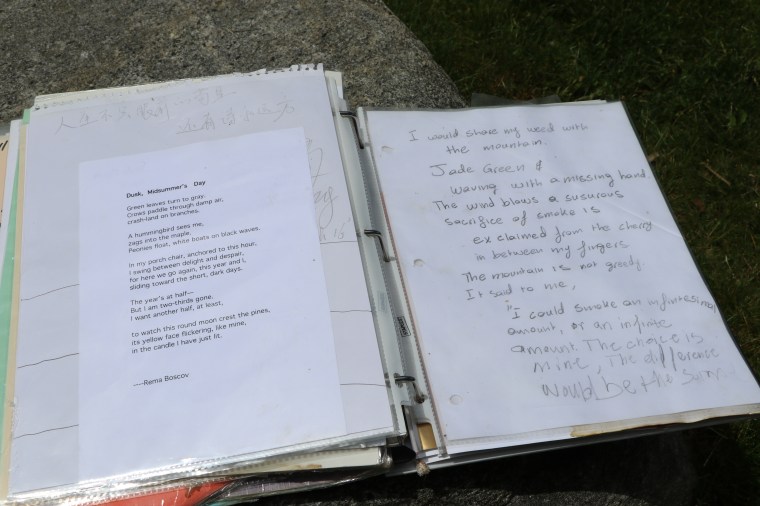 人生不只
还有
Dusk, Midsummer's Day
Green leaves turn to gray.
Crows paddle through damp air,
crash-land on branches.
A hummingbird sees me,
zags into the maple.
Peonies float, white boats on black waves.
In my porch chair, anchored to this hour,
I swing between delight and despair,
for here we go again, this year and I,
sliding toward the short, dark days.
The year's at half—
But I am two-thirds gone.
I want another half, at least,
to watch this round moon crest the pines,
its yellow face flickering, like mine,
in the candle I have just lit.
—Rema Boscov
I would share my weed with
the mountain.
Jade Green &
waving with a missing hand,
The wind blows a susurous
sacrifice of smoke is
exclaimed from the cherry
in between my fingers
The mountain is not greedy.
It said to me,
"I could smoke an infinitesimal
amount, or an infinite
amount. The choice is
mine, The difference
would be the same